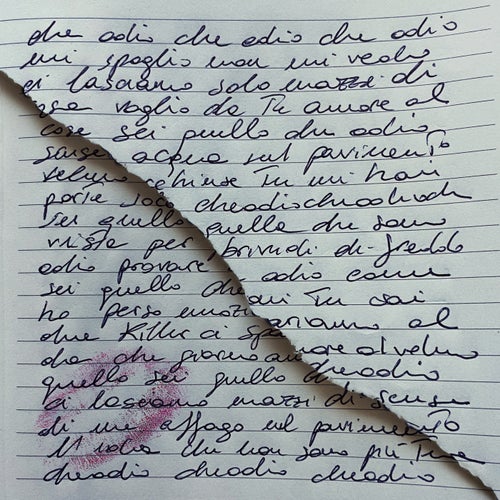 che odio che odio che odio
mi spoglio non mi vedo
ci lasciamo solo mazzi di
voglio da Tu amore al
cose sei quello che odio
sangue acqua sul pavimento
veleno chiuse Tu mi hai
porte solo cheodiocheodioch
sei quello quella che sono
viste per brividi di freddo
odio provare odio come
sei quello che Tu sai
ho perso al
che Killer ci
che che giorno amore al veleno
quello sei quello cheodio
ci lasciamo mazzi di sensi
di me affogo sul pavimento
M che non sono più Tua
cheodio cheodio cheodio